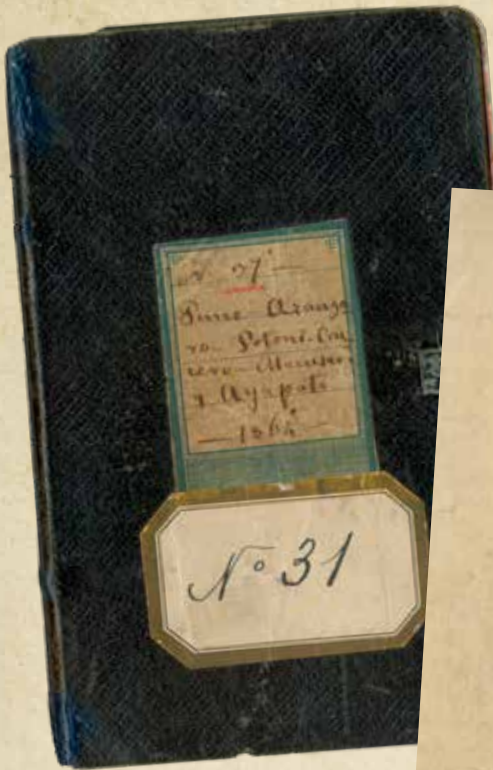 Nº 37
Puno Azanga
ro_ Potoni. Cru
cero_ Macusani
y Ayapata
— 1864 —
Nº 31